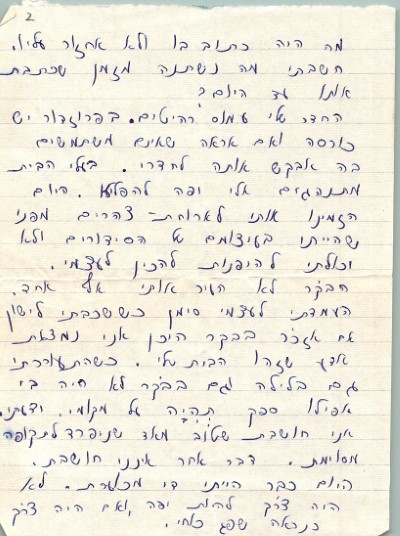 2
מה היה כתוב בו ולא אחזור עליו.
חשבתי מה נשתנה מזמן שכתבת
אותו עד היום?
החדר שלי עמוס רהיטים. בפרוזדור יש
כורסה ואם אראה שאינם משתמשים
בה אבקש אותה לחדרי. בעלי הבית
מתנהגים אלי יפה להפליא. היום
הזמינו אותי לארוחת-צהרים מפני
שהייתי בעיצומם של הסידורים ולא
יכולתי להיפנות להכין לעצמי.
הבקר לא העיר אותי אף אחד.
העמדתי לעצמי סימן כששכבתי לישון
אם אזכר בבקר היכן אני נמצאת
אדע שזהו הבית שלי. כשהתעוררתי
גם בלילה וגם בבקר לא היה בי
אפילו ספק תהיה על מקומי. ודעתי.
אני חושבת שטוב מאד שניפרד לתקופה
מסוימת. דבר אחר אינני חושבת.
היום כבר הייתי די מכוערת. לא
היה צרך להיות יפה, ואם היה צרך
כנראה שפג כוחי.